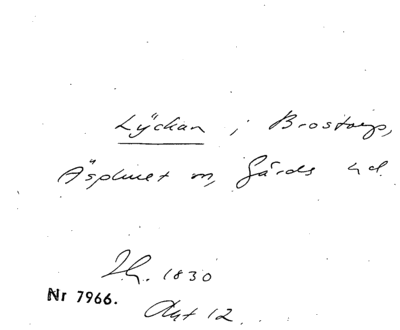 Lyckan i Brostorp,
Äsphult sn, Gärds hd.
1830
Nr 7966.
Akt 12.